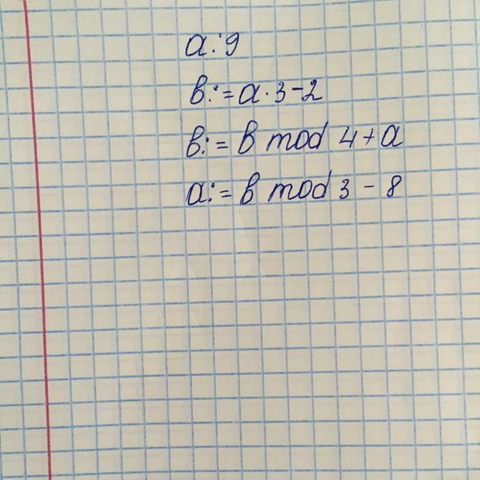 a:9
b:=a·3-2
b:= b mod 4+a
a:= b mod 3 - 8